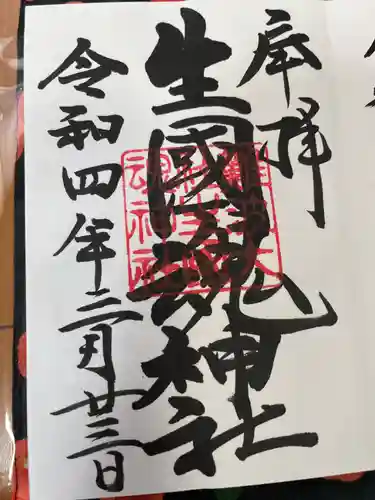 奉拝
生國魂神社
令和四年三月廿三日